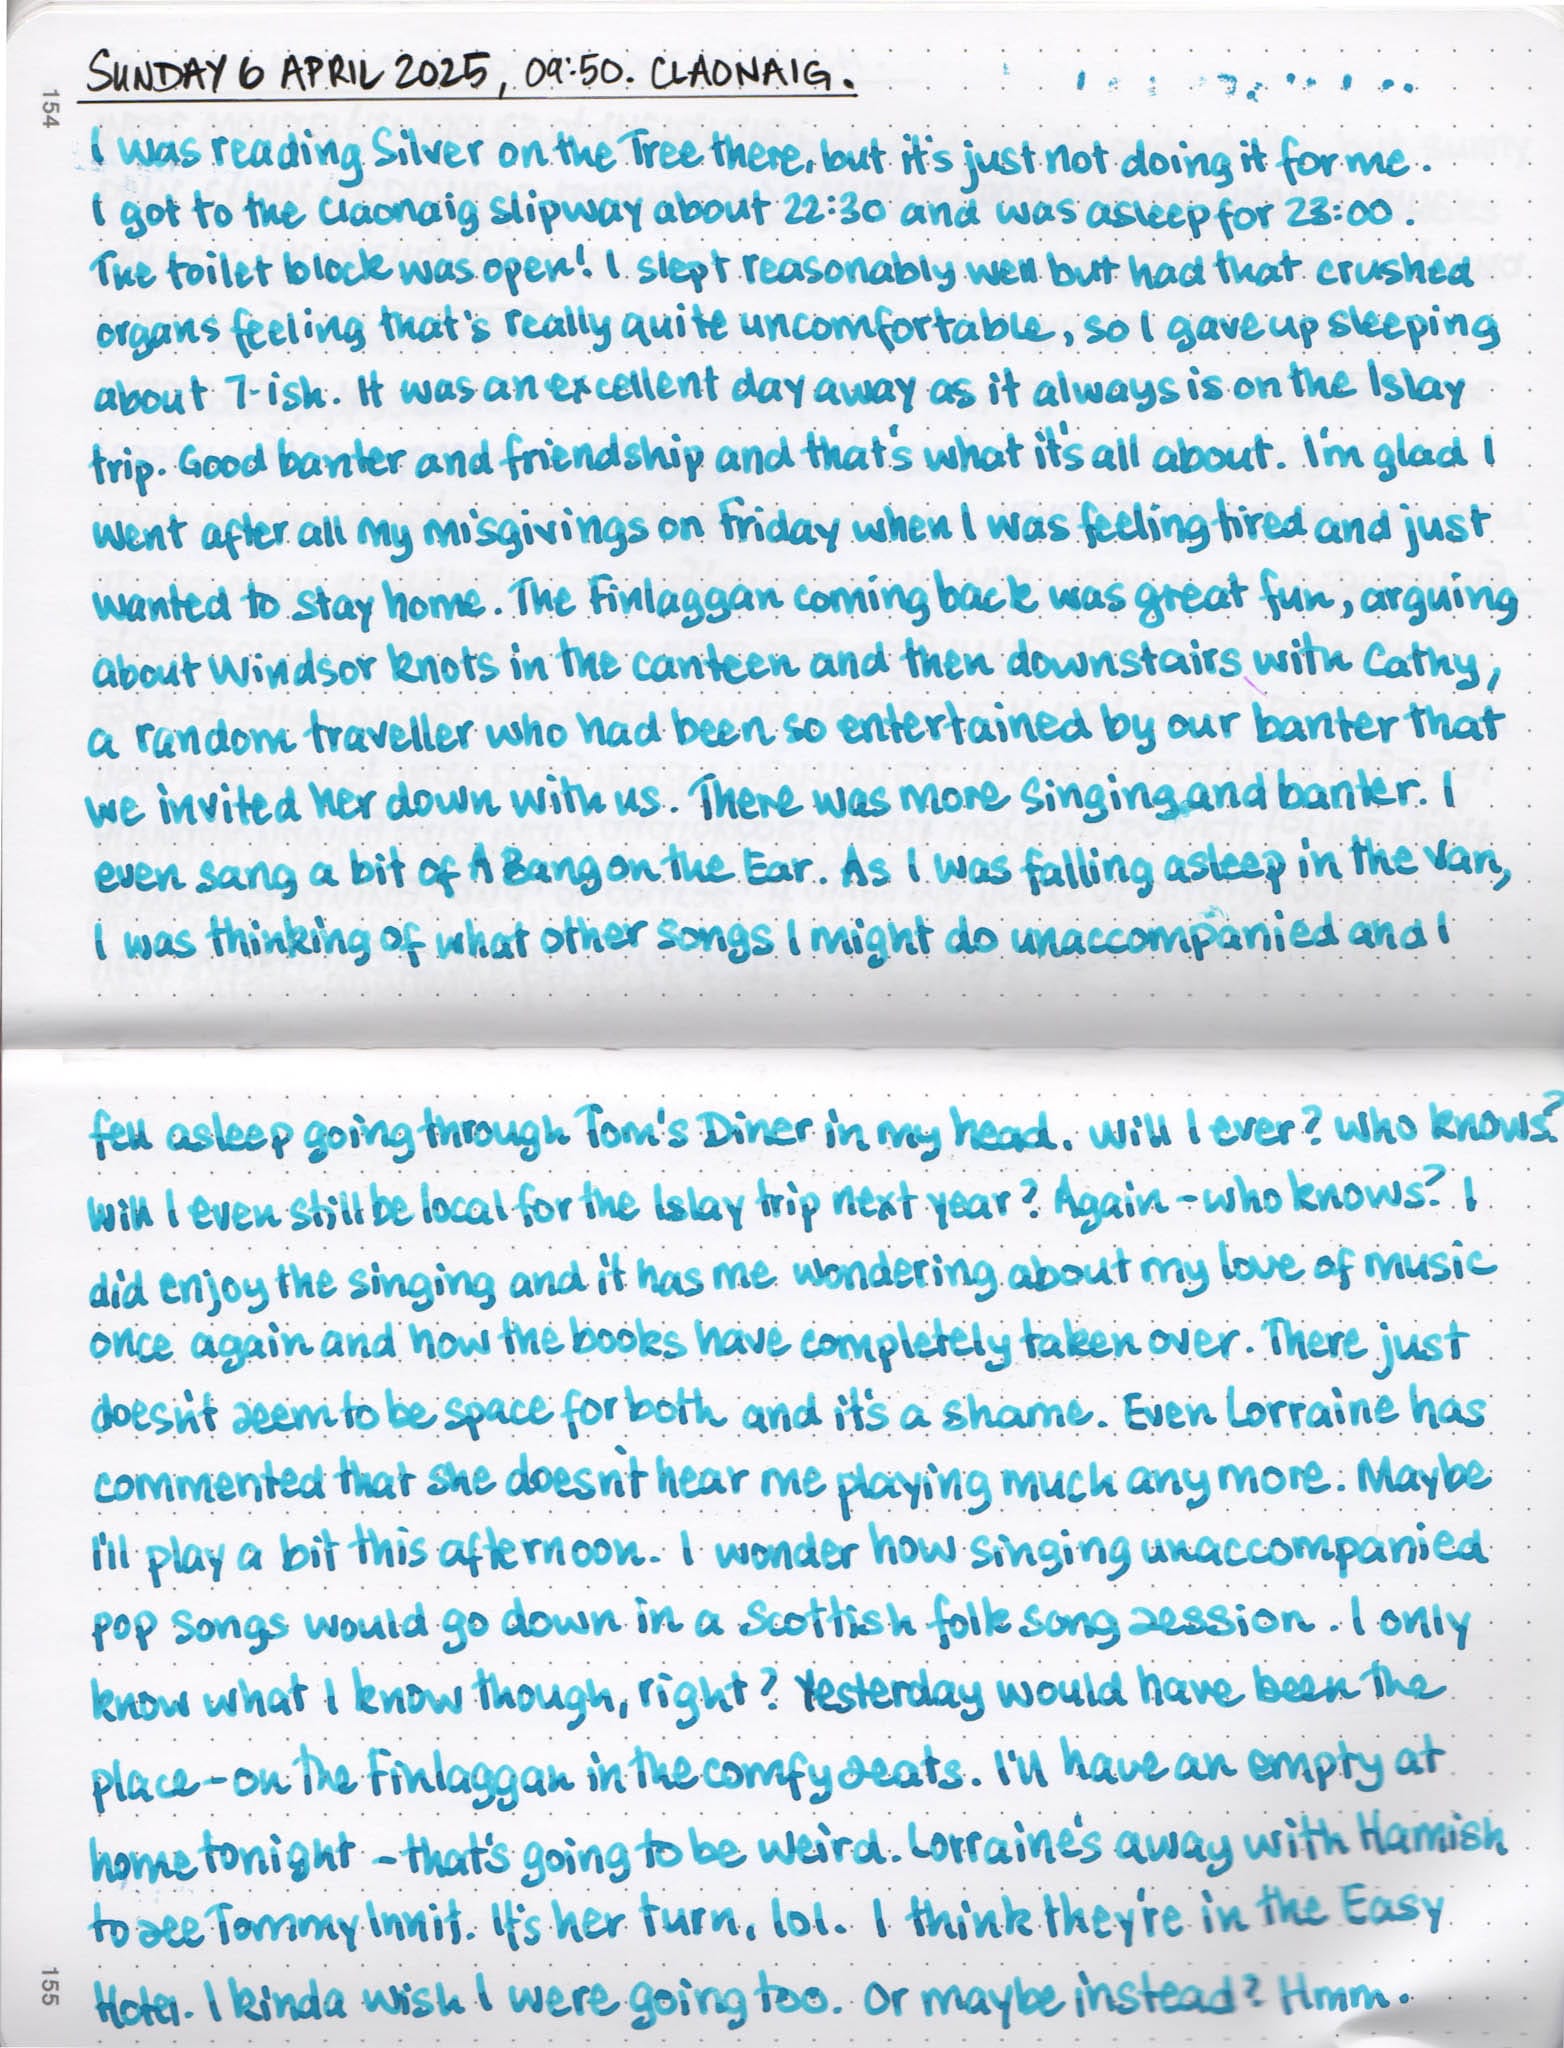 SUNDAY 6 APRIL 2025, 09:50. CLAONAIG.
154
I was reading Silver on the Tree there, but it's just not doing it for me.
I got to the Claonaig slipway about 22:30 and was asleep for 23:00.
The toilet block was open! I slept reasonably well but had that crushed
organs feeling that's really quite uncomfortable, so I gave up sleeping
about 7-ish. It was an excellent day away as it always is on the Islay
trip. Good banter and friendship and that's what it's all about. I'm glad I
went after all my misgivings on Friday when I was feeling tired and just
wanted to stay home. The Finlaggan coming back was great fun, arguing
about Windsor knots in the canteen and then downstairs with Cathy,
a random traveller who had been so entertained by our banter that
we invited her down with us. There was more singing and banter. I
even sang a bit of A Bang on the Ear. As I was falling asleep in the van,
I was thinking of what other songs I might do unaccompanied and I
fell asleep going through Tom's Diner in my head. Will I ever? Who knows?
Will I even still be local for the Islay trip next year? Again - who knows? I
did enjoy the singing and it has me wondering about my love of music
once again and how the books have completely taken over. There just
doesn't seem to be space for both and it's a shame. Even Lorraine has
commented that she doesn't hear me playing much any more. Maybe
I'll play a bit this afternoon. I wonder how singing unaccompanied
pop songs would go down in a Scottish folk song session. I only
know what I know though, right? Yesterday would have been the
place - on the Finlaggan in the comfy seats. I'll have an empty at
home tonight - that's going to be weird. Lorraine's away with Hamish
to see Tommy Innit. It's her turn, lol. I think they're in the Easy
Hotel. I kinda wish I were going too. Or maybe instead? Hmm.
155